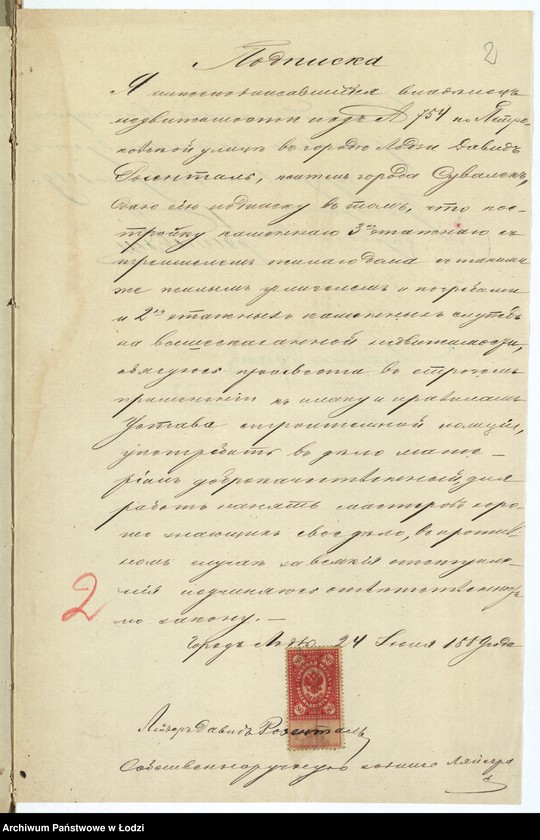 2
Подписка
Я нижеподписавшійся владѣлецъ
недвижимости подъ № 754 по Петро-
ковской улицѣ въ городѣ Лодзи Давидъ
Розенталь, житель города Сувалокъ,
даю сію подписку въ томъ, что пос-
тройку каменнаго 3хъ этажнаго съ
жилаго дома съ таким
же жилымъ флигелемъ и погребами
и 2хъ этажныхъ каменныхъ службъ
на вышесказанной недвижимости,
обязуюсь произвести въ строгомъ
примѣненіи къ плану и правиламъ
Устава строительной полиціи,
употребить въ дѣло мате-
ріалъ доброкачественный, для
работъ нанять мастеровъ хоро-
шо знающихъ свое дѣло, въ против-
номъ случаѣ за всякія отступле-
нія подчиняюсь отвѣтственности
по закону. —
2
Городъ Лодзь, 24 Іюля 1889 года
Лейзеръ Давидъ Розенталь
Собственноручную подпись Лейзера
Archiwum Państwowe w Łodzi